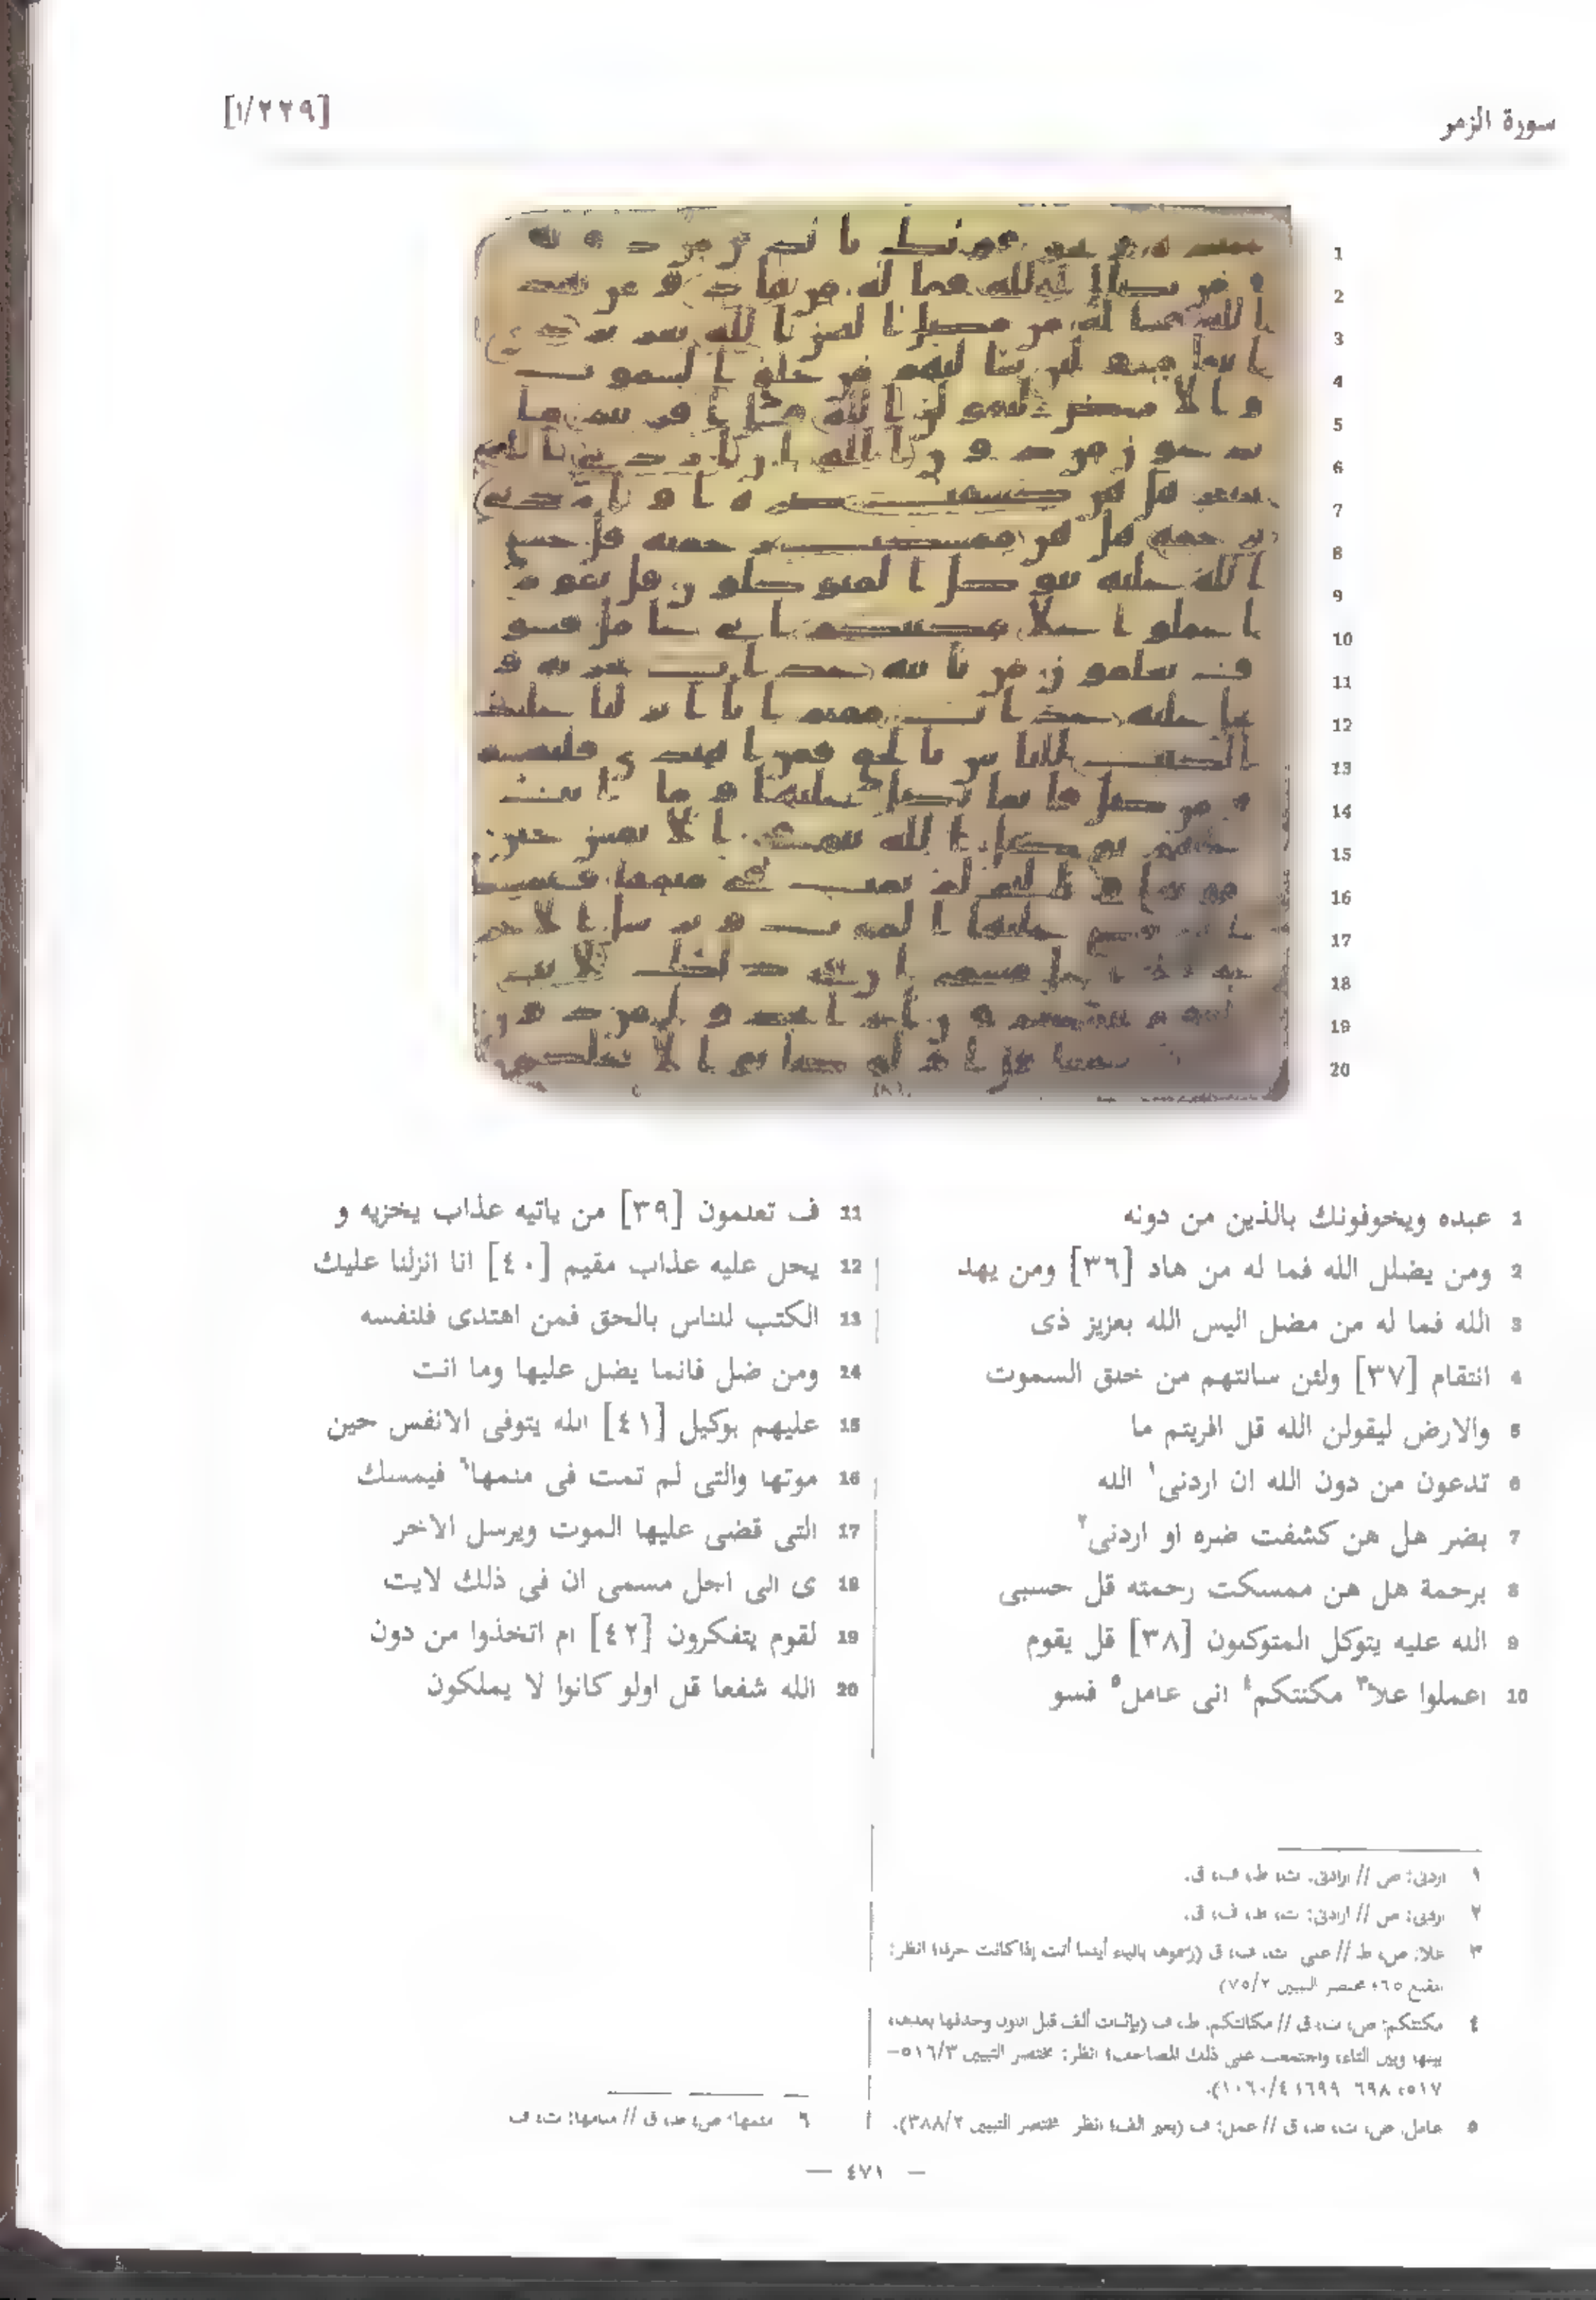 سورة الزمر
[١/٢٢٩]
1 عبده ويخوفونك بالذين من دونه
2 ومن يضلل الله فما له من هاد [٣٦] ومن يهد
3 الله فما له من مضل اليس الله بعزيز ذى
4 انتقام [٣٧] ولئن سالتهم من خلق السموت
5 والارض ليقولن الله قل افريتم ما
6 تدعون من دون الله ان اردنى١ الله
7 بضر هل هن كشفت ضره او اردنى٢
8 برحمة هل هن ممسكت رحمته قل حسبى
9 الله عليه يتوكل المتوكلون [٣٨] قل يقوم
10 اعملوا علا٣ مكنتكم٤ انى عامل٥ فسو
11 ف تعلمون [٣٩] من ياتيه عذاب يخزيه و
12 يحل عليه عذاب مقيم [٤٠] انا انزلنا عليك
13 الكتب للناس بالحق فمن اهتدى فلنفسه
14 ومن ضل فانما يضل عليها وما انت
15 عليهم بوكيل [٤١] الله يتوفى الانفس حين
16 موتها والتى لم تمت فى منمها٦ فيمسك
17 التى قضى عليها الموت ويرسل الاخر
18 ى الى اجل مسمى ان فى ذلك لايت
19 لقوم يتفكرون [٤٢] ام اتخذوا من دون
20 الله شفعا قل اولو كانوا لا يملكون
١ اردنى: ص // ارادنى: ت، ط، ف، ق.
٢ اردنى: ص // ارادنى: ت، ط، ف، ق.
٣ علا: ص، ط // على: ت، ف، ق (رسموها بالياء أينما أتت إذا كانت حرفا؛ انظر:
المقنع ٦٥؛ مختصر التبيين ٧٥/٢)
٤ مكنتكم: ص، ت، ق // مكانتكم: ط، ف (بإثبات ألف قبل النون وحذفها بعدها،
بينها وبين التاء، واجتمعت على ذلك المصاحف؛ انظر: مختصر التبيين ٥١٦/٣-
٥١٧، ٦٩٨-٦٩٩؛ ١٠٦٠/٤).
٥ عامل: ص، ت، ط، ق // عمل: ف (بغير الف؛ انظر: مختصر التبيين ٣٨٨/٢).
٦ منمها: ص، ط، ق // منامها: ت، ف
— ٤٧١ —